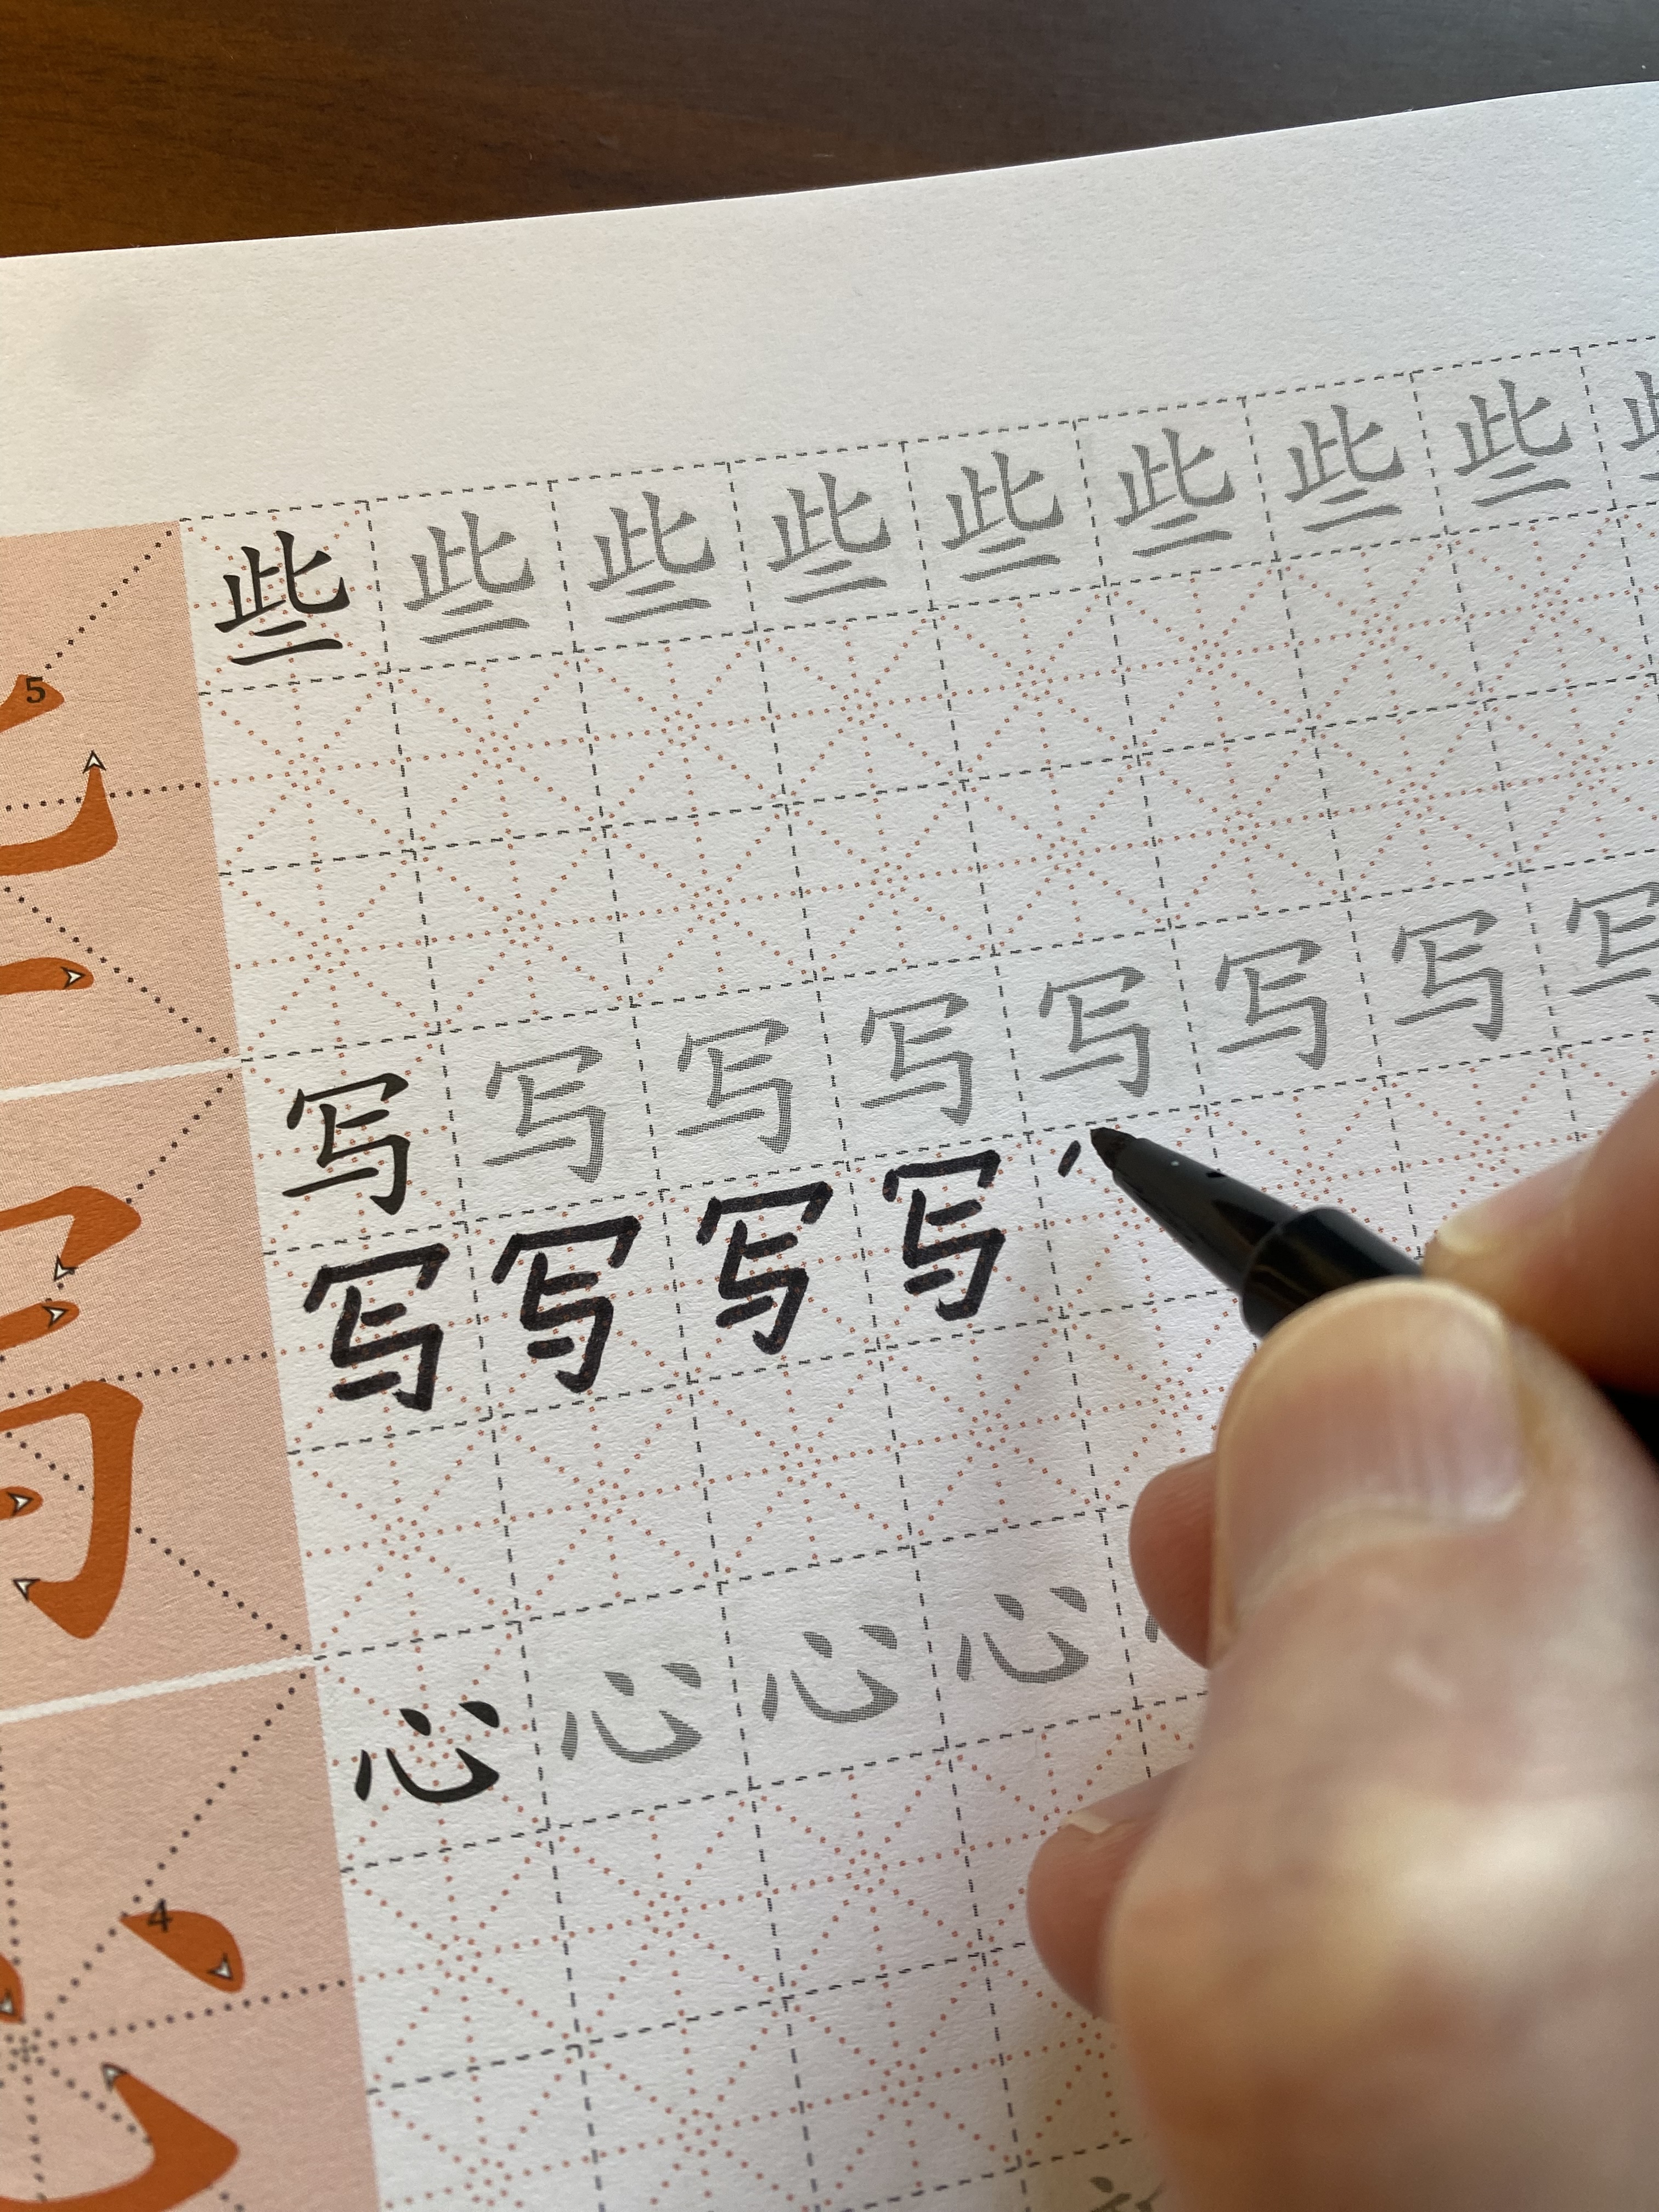 些些些些些些些些
5
写写写写写写写写
写写写写
心心心心
4